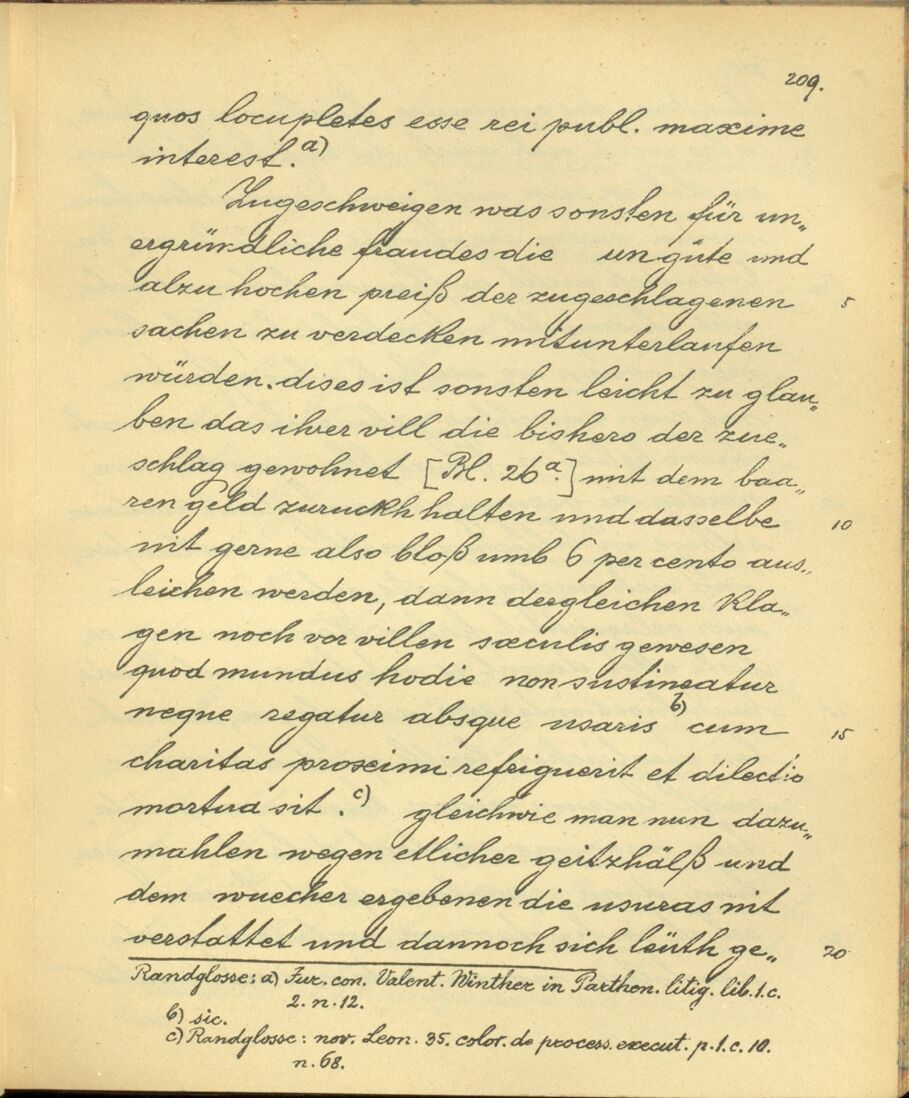 209.
quos locupletes esse rei publ. maxime
interest.a)
Zugeschweigen was sonsten für un„
ergründliche fraudes die un güte und
alzu hochen preiß der zugeschlagenen 5
sachen zu verdecken mitunterlaufen
würden. dises ist sonsten leicht zu glau„
ben das ihrer vill die bishero der zue„
schlag gewohnet [Bl. 26a.] mit dem baa„
ren geld zuruckhhalten und dasselbe 10
nit gerne also bloß umb 6 per cento aus„
leichen werden, dann dergleichen Kla„
gen noch vor villen sæculis gewesen
quod mundus hodie non sustineatur
neque regatur absque usaris b) cum 15
charitas proximi refriguerit et dilectio
mortua sit. c) gleichwie man nun dazu„
mahlen wegen etlicher geitzhälß und
dem wuecher ergebenen die usuras nit
verstattet und dannoch sich leüth ge„ 20
Randglosse: a) Fur. con. Valent. Winther in Parthen. litig. lib. 1. c.
2. n. 12.
b) sic.
c) Randglosse: nov. Leon. 35. color. de process. execut. p. 1. c. 10.
n. 68.